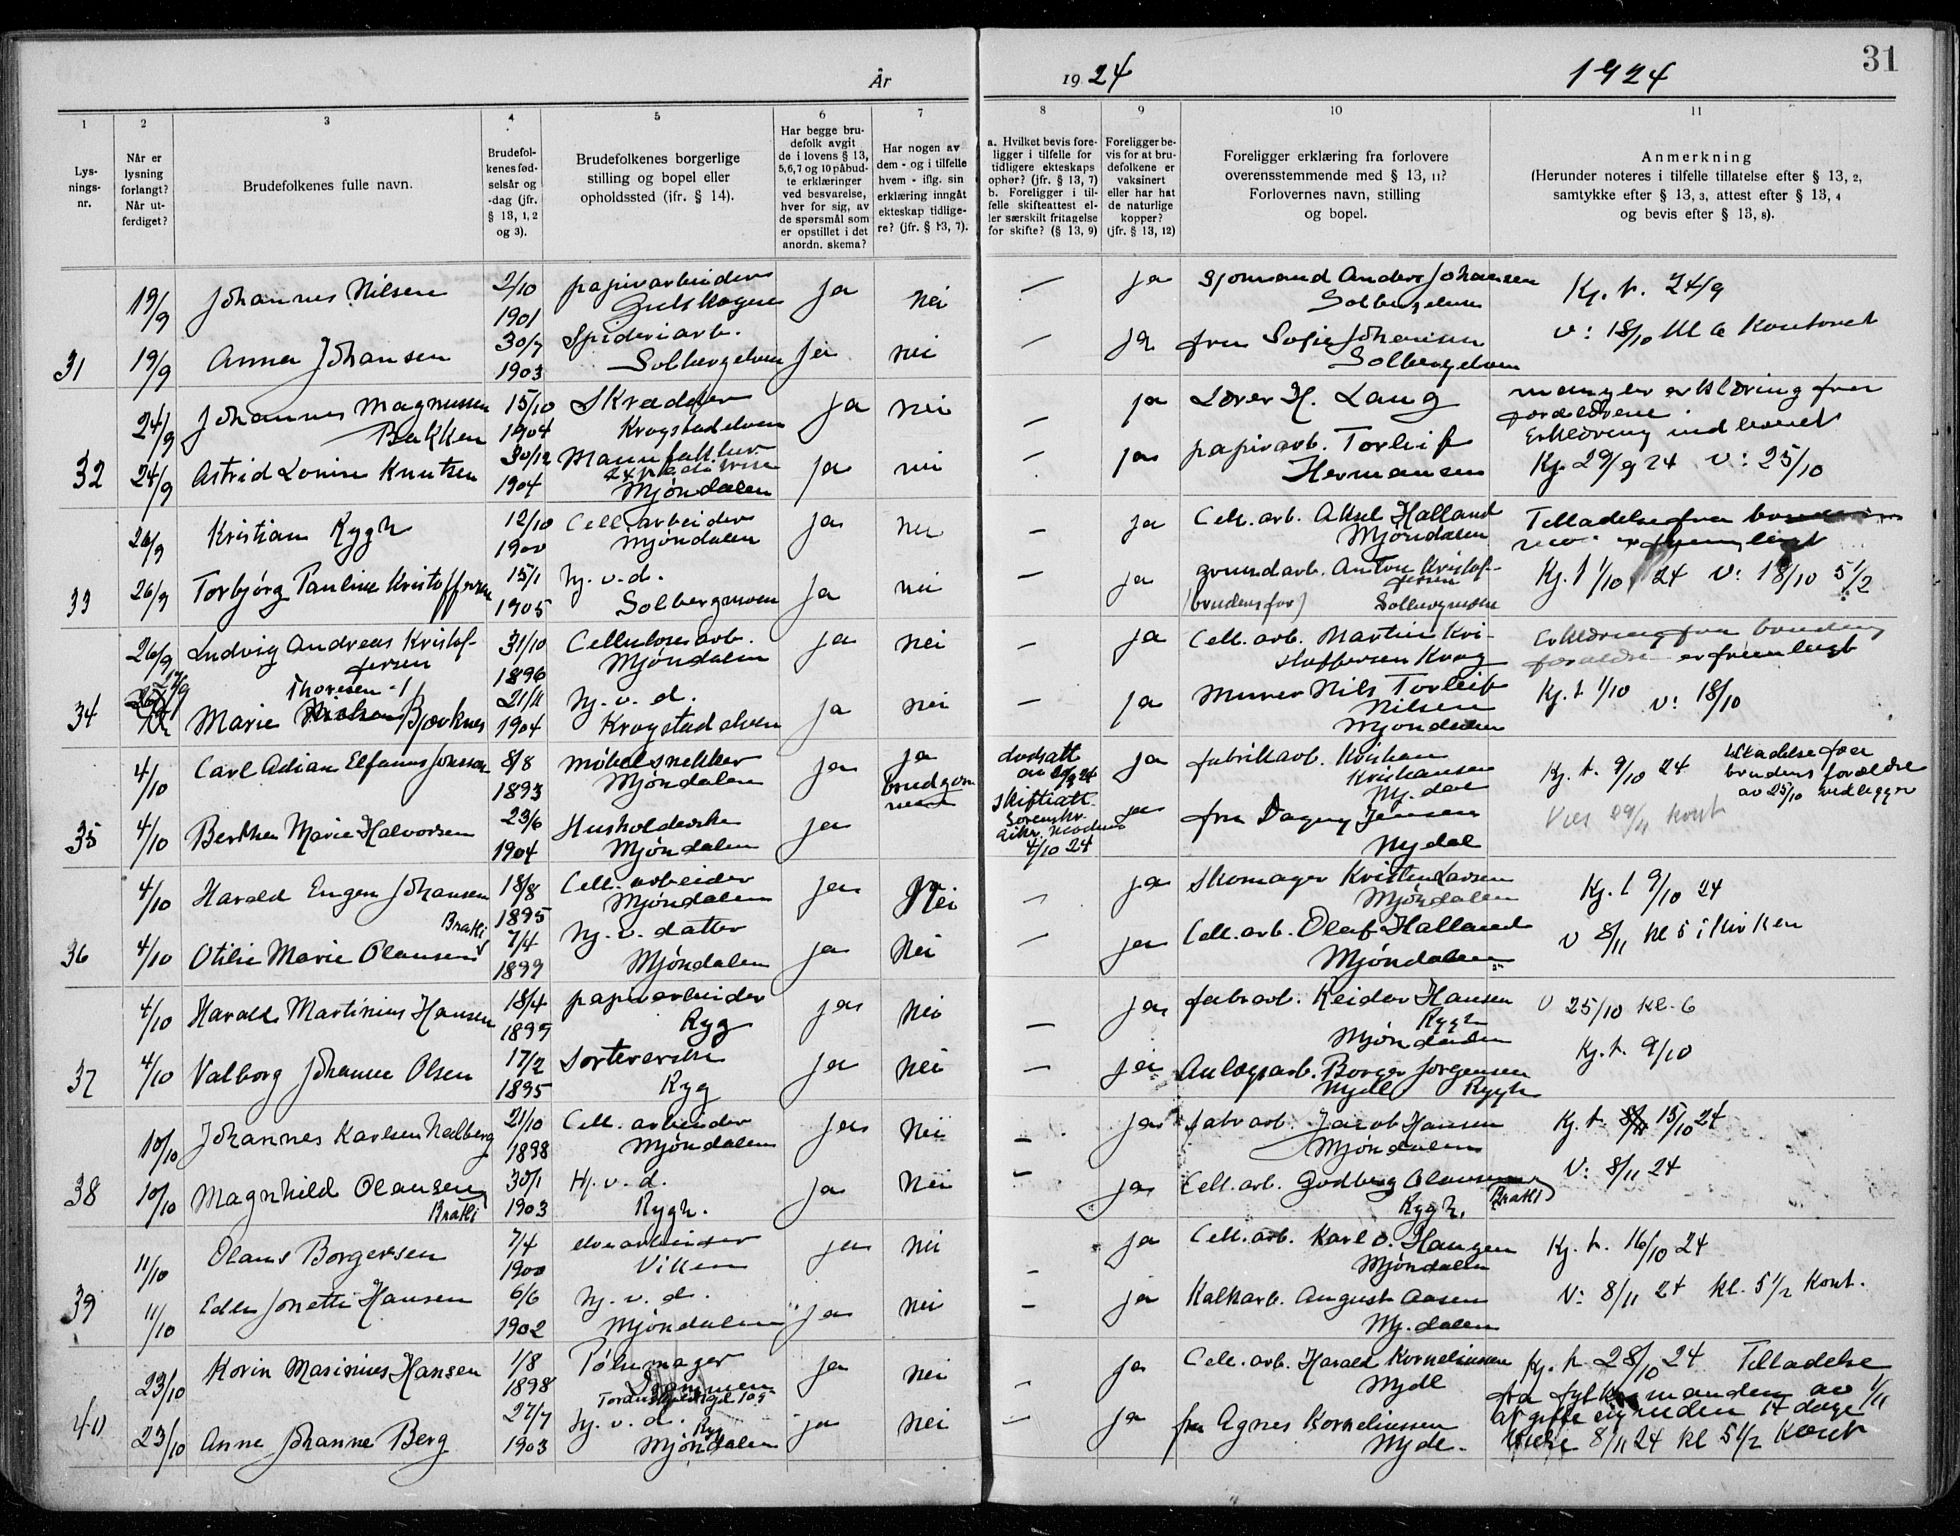 31
År
19 24
1924
1
2
3
4
5
6
7
8
9
10
11
Lys-
nings-
nr.
Når er
lysning
forlangt?
Når ut-
ferdiget?
Brudefolkenes fulle navn.
Brudefol-
kenes fød-
selsår og
-dag (jfr.
§ 13, 1, 2
og 3).
Brudefolkenes borgerlige
stilling og bopel eller
opholdssted (ifr. § 14).
Har begge bru-
defolk avgit
de i lovens § 13,
5,6,7 og 10 påbud-
te erklæringer
ved besvarelse,
hver for sig, av
de spørsmål som
er opstillet i det
anordn. skema?
Har nogen av
dem - og i tilfelle
hvem - iflg. sin
erklæring inngått
ekteskap tidlige-
re? (jfr. § 13, 7).
a. Hvilket bevis fore-
ligger i tilfelle for
tidligere ekteskaps
ophør? (jfr. § 13, 7)
b. Foreligger i til-
felle skifteattest el-
ler særskilt fritagelse
for skifte? (§ 13, 9)
Foreligger be-
vis for at bru-
defolkene er
vaksinert
eller har hat
de naturlige
kopper?
(jfr. § 13, 12)
Foreligger erklæring fra forlovere
overensstemmende med § 13, 11?
Forlovernes navn, stilling
og bopel.
Anmerkning
(Herunder noteres i tilfelle tillatelse efter § 13, 2,
samtykke efter § 13, 3, attest efter § 13, 4
og bevis efter § 13, 8).
19/9 Johannes Nilsen 2/10 1901 papirarbeider Gulskogen ja nei — ja Sjømand Anders Johansen Solbergelven Kj. t. 24/9
31 19/9 Anna Johansen 30/7 1903 Spideriarb. Solbergelven ja nei — ja fru Sofie Johansen Solbergelven V: 18/10 kl 6 Kontoret
24/9 Johannes Magnussen Bakken 15/10 1904 Skrædder Krogstadelven ja nei — ja Lærer H. Lang mangler erklæring fra forældrene
32 24/9 Astrid Lovise Knutsen 30/12 1904 Mjøndalen ja nei — ja papirarb. Torleif Hermansen Erklæring indleveret Kj. 29/9 24 V: 25/10
26/9 Kristian Rygh 12/10 1900 Cell. arbeider Mjøndalen ja nei — ja Cell. arb. Aksel Halland Mjøndalen Tilladelse fra
33 26/9 Torbjørg Pauline Kristoffersen 15/1 1905 hj. v. d. Solbergmoen ja nei — ja grundarb. Anton Kristoffersen (brudens far) Solbergmoen Kj. t 1/10 24 V: 18/10 5 1/2
26/9 Ludvig Andreas Kristoffersen 31/10 1896 Cellulosearb. Mjøndalen ja nei — ja Cell. arb. Martin Kristoffersen Krog Erklæring fra brudens forældre er fremlagt
34 Marie Thoresen Bjerknes 21/11 1904 hj. v. d. Krogstadelven ja nei — ja Murer Nils Torleif Nilsen Mjøndalen Kj. t 1/10 V: 18/10
4/10 Carl Adian Elfanus Jonsson 8/8 1893 møbelsnekker Mjøndalen ja ja brudgommen ja fabrikarb. Kristian Kristiansen Mj. dal Kj. t. 9/10 24 Tilladelse fra brudens forældre av 25/10 vedlegges
35 4/10 Berthe Marie Halvorsen 23/6 1904 Husholderske Mjøndalen ja Skifteatt. 4/10 24 ja fru Dagny Jensen Mj dal Viet 29/11 kont
4/10 Harald Eugen Johansen 18/8 1895 Cell. arbeider Mjøndalen ja Nei — ja Skomager Kristen Larsen Mjøndalen Kj. t 9/10 24
36 4/10 Otilie Marie Olausen Brakti 7/4 1899 hj. v. datter Mjøndalen ja Nei — ja Cell. arb. Olaf Halland Mjøndalen V 8/11 kl 5 i kirken
4/10 Harald Martinius Hansen 18/4 1899 papirarbeider Ryg ja Nei — ja fabr arb. Reidar Hansen Rygh Mjøndalen V 25/10 kl. 6
37 4/10 Valborg Johanne Olsen 17/2 1895 Sorterer­ske Ryg ja Nei — ja Anlægsarb. Borger Jørgensen Mjdl Rygh Kj. t. 9/10
10/10 Johannes Karlsen Nedberg 21/10 1898 Cell. arbeider Mjøndalen ja Nei — ja fabr arb. Jacob Hansen Mjøndalen Kj. t. 15/10 24
38 10/10 Magnhild Olausen Brakti 30/1 1903 Hj. v. d. Rygh. ja Nei — ja Cell. arb. Godberg Olausen Brakti Rygh. V: 8/11 24
11/10 Olaus Borgersen 7/4 1900 elvearbeider Viken ja Nei — ja Cell. arb. Karl O. Haugen Mjøndalen Kj. t. 16/10 24
39 11/10 Edle Jonette Hansen 6/6 1902 hj. v. d. Mjøndalen ja Nei — ja Kalkarb. August Aasen Mj. dalen V: 8/11 24 kl. 5 1/2 kont.
23/10 Korin Masinius Hansen 1/8 1898 Pølsemager Drammen ja Nei — ja Cell. arb. Harald Korneliussen Mjdl Kj. t. 28/10 24 Tilladelse
40 23/10 Anne Johanne Berg 27/7 1903 hj. v. d. Ryg Mjøndalen ja Nei — ja fru Agnes Korneliussen Mjdl. fra fylkesmanden av 1/11 at gifte sig inden 14 dage Vielse 8/11 24 kl 5 1/2 kont